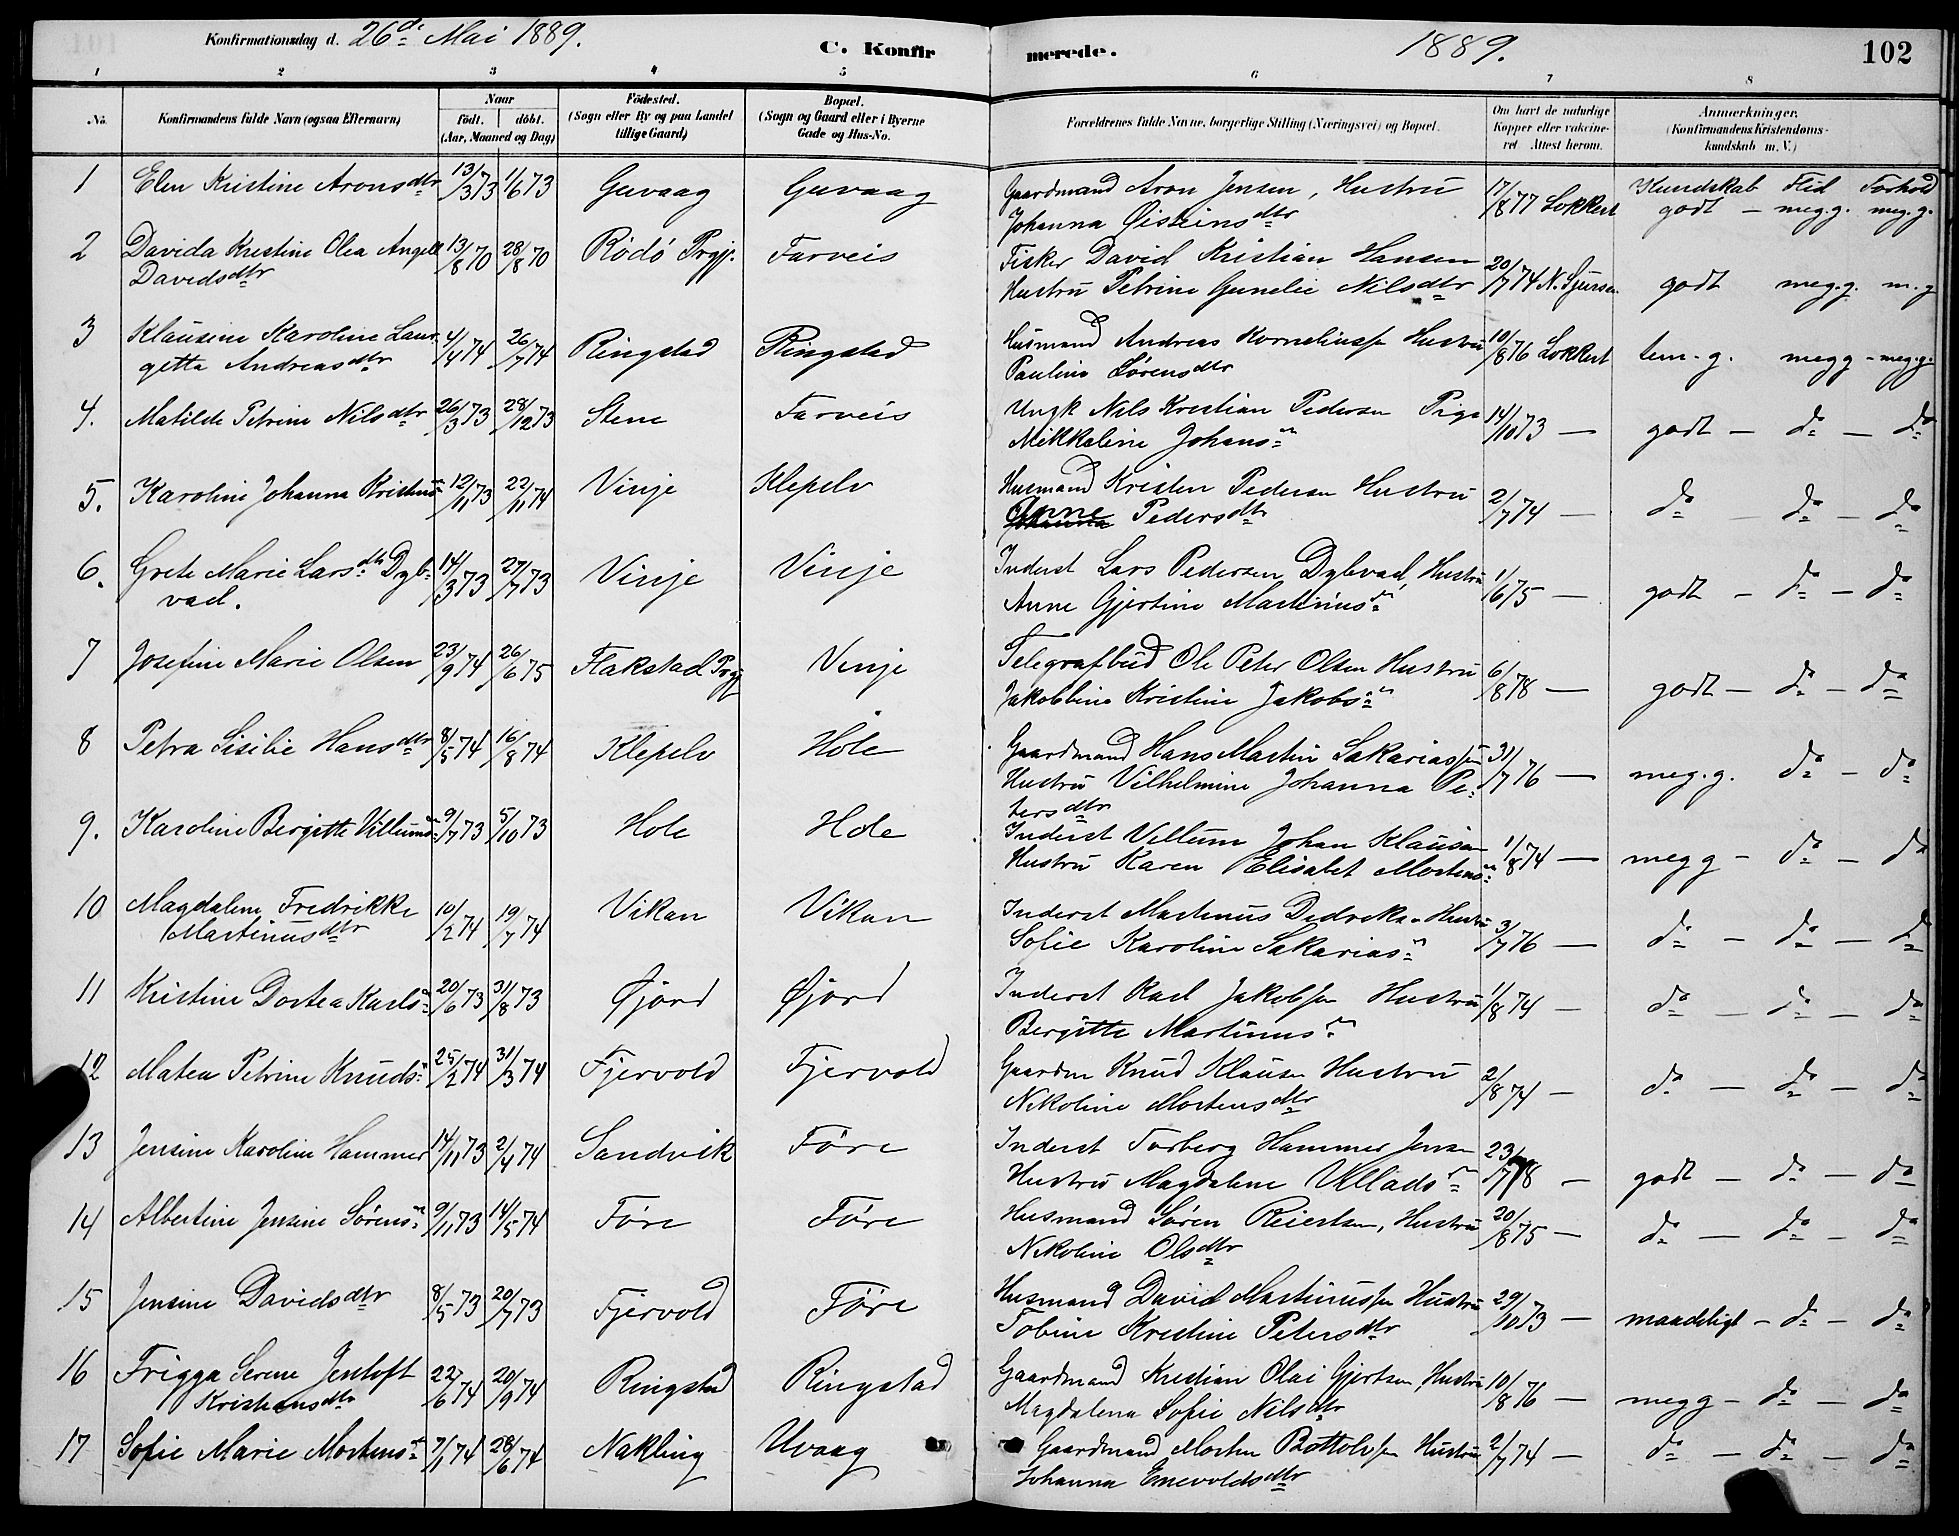 Konfirmationsdag d. 26de Mai 1889. C. Konfirmerede. 1889. 102
1 2 3 4 5 6 7 8
No. Konfirmandens fulde Navn (ogsaa Efternavn) Naar født. døbt. (Aar, Maaned og Dag) Fødested. (Sogn eller By og paa Landet tillige Gaard) Bopæl. (Sogn og Gaard eller i Byerne Gade og Hus-No. Forældrenes fulde Navne, borgerlige Stilling (Næringsvei) og Bopæl. Om havt de naturlige Kopper eller vakcineret. Attest herom. Anmærkninger. (Konfirmandens Kristendomskundskab m. V.)
Kundskab Flid Forhold
1 Elen Kristine Aronsdtr 13/3 73 1/6 73 Guvaag Guvaag Gaardmand Aron Jensen, Hustru 17/8 77 Lokkert godt - meg.g. meg.g.
Johanna Øisteinsdtr
2 Davida Kristine Olea Angell 13/8 70 28/8 70 Rødø Prgj. Farveis Fisker David Kristian Hansen 20/7 74 N. Sjursen godt meg.g. m.g
Davidsdtr Hustru Petrine Gunelie Nilsdtr
3 Klausine Karoline Laur- 4/4 74 26/7 74 Ringstad Ringstad Husmand Andreas Korneliuss. Hustru 10/8 76 Lokkert tem-g. megg - meg.g.
getta Andreasdtr Pauline Sørensdtr
4. Matilde Petrine Nilsdtr 26/3 73 28/12 73 Stene Farveis Ungk Nils Kristian Pedersen Pige 14/10 73 — godt - do - do
Mikkaline Johans
5. Karoline Johanna Kristens 12/11 73 22/11 74 Vinje Klepelv Husmand Kristen Pedersen Hustru 2/7 74 — do do - do
Anne Pedersdtr
6. Grete Marie Larsdtr Dyb- 14/3 73 27/7 73 Vinje Vinje Inderst Lars Pedersen Dybvad, Hustru 1/6 75 — godt - do - do
vad. Anne Gjertine Martinusd
7 Josefine Marie Olsen 23/9 74 26/6 75 Flakstad Prgj Vinje Telegrafbud Ole Peter Olsen Hustru 6/8 78 — godt - do - do
Jakobbine Kristine Jakobs
8 Petra Sisilie Hansdtr 8/5 74 16/8 74 Klepelv Hole Gaardmand Hans Martin Sakariass. 31/7 76 — meg.g. do - do
Hustru Vilhelmine Johanna Pe-
tersdtr
9. Karoline Bergitte Villums 9/7 73 5/10 73 Hole Hole Inderst Villum Johan Klausen 1/8 74 — megg - do - do
Hustru Karen Elisabet Mortens
10 Magdalene Fredrikke 10/2 74 19/7 74 Vikan Vikan Inderst Martinus Didriks. Hustru 3/7 76 — do - do - do
Martinusdtr Sofie Karoline Sakarias
11 Kristine Dortea Karls 20/6 73 31/8 73 Øjord Øjord Inderst Karl Jakobsen Hustru 1/8 74 — do - do - do
Bergitte Martinus
12 Matea Petrine Knuds 25/2 74 31/3 74 Fjervold Fjervold Gaardm Knud Klausen Hustru 2/8 74 — do - do - do
Nikoline Mortensdtr
13 Jensine Karoline Hammer 14/11 73 2/4 74 Sandvik Føre Inderst Torberg Hammer Jensen 23/7 78 — godt - do - do
Hustru Magdalene Villads
14 Albertine Jensine Sørens 9/11 73 14/5 74 Føre Føre Husmand Søren Reiertsen, Hustru 20/8 75 — do - do - do
Nikoline Olsdtr
15 Jensine Davidsdtr 8/5 73 20/7 73 Fjervold Føre Husmand David Martinussen Hustru 29/10 73 — maadeligt - do - do
Tobine Kristine Petersdtr
16 Frigga Serine Jentoft 22/6 74 20/9 74 Ringstad Ringstad Gaardmand Kristian Olai Gjertsen, Hustru 10/8 76 — megg - do - do
Kristiansdtr Magdalena Sofie Nilsdtr
17 Sofie Marie Mortens 7/1 74 28/6 74 Nakling Uvaag Gaardmand Morten Bottolvsen Hustru 2/7 74 — do - do - do
Johanna Enevoldsdtr